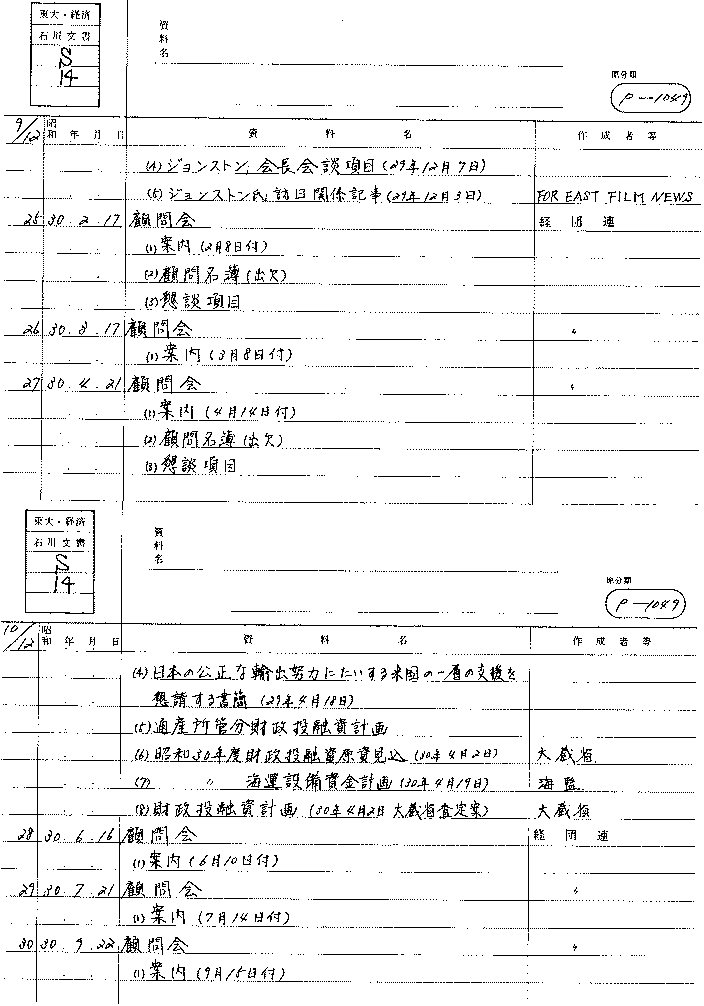 東大・経済
石川文書
S
14
資料名
原分類
P-1049
9/12 昭和 年 月 日 資料名 作成者等
(4) ジョンストン, 会長会談項目 (29年12月7日)
(5) ジョンストン氏, 訪日関係記事 (29年12月3日) FOR EAST FILM NEWS
25 30. 2. 17 顧問会 経団連
(1) 案内 (2月8日付)
(2) 顧問名簿 (出欠)
(3) 懇談項目
26 30. 3. 17 顧問会 〃
(1) 案内 (3月8日付)
27 30. 4. 21 顧問会 〃
(1) 案内 (4月14日付)
(2) 顧問名簿 (出欠)
(3) 懇談項目
東大・経済
石川文書
S
14
資料名
原分類
P-1049
10/12 昭和 年 月 日 資料名 作成者等
(4) 日本の公正な輸出努力にたいする米国の一層の支援を
懇請する書簡 (29年4月18日)
(5) 通産所管分財政投融資計画
(6) 昭和30年度財政投融資原資見込 (30年4月2日) 大蔵省
(7) 〃 海運設備資金計画 (30年4月19日) 海監
(8) 財政投融資計画 (30年4月2日 大蔵省査定案) 大蔵省
28 30. 6. 16 顧問会 経団連
(1) 案内 (6月10日付)
29 30. 7. 21 顧問会 〃
(1) 案内 (7月14日付)
30 30. 9. 22 顧問会 〃
(1) 案内 (9月15日付)